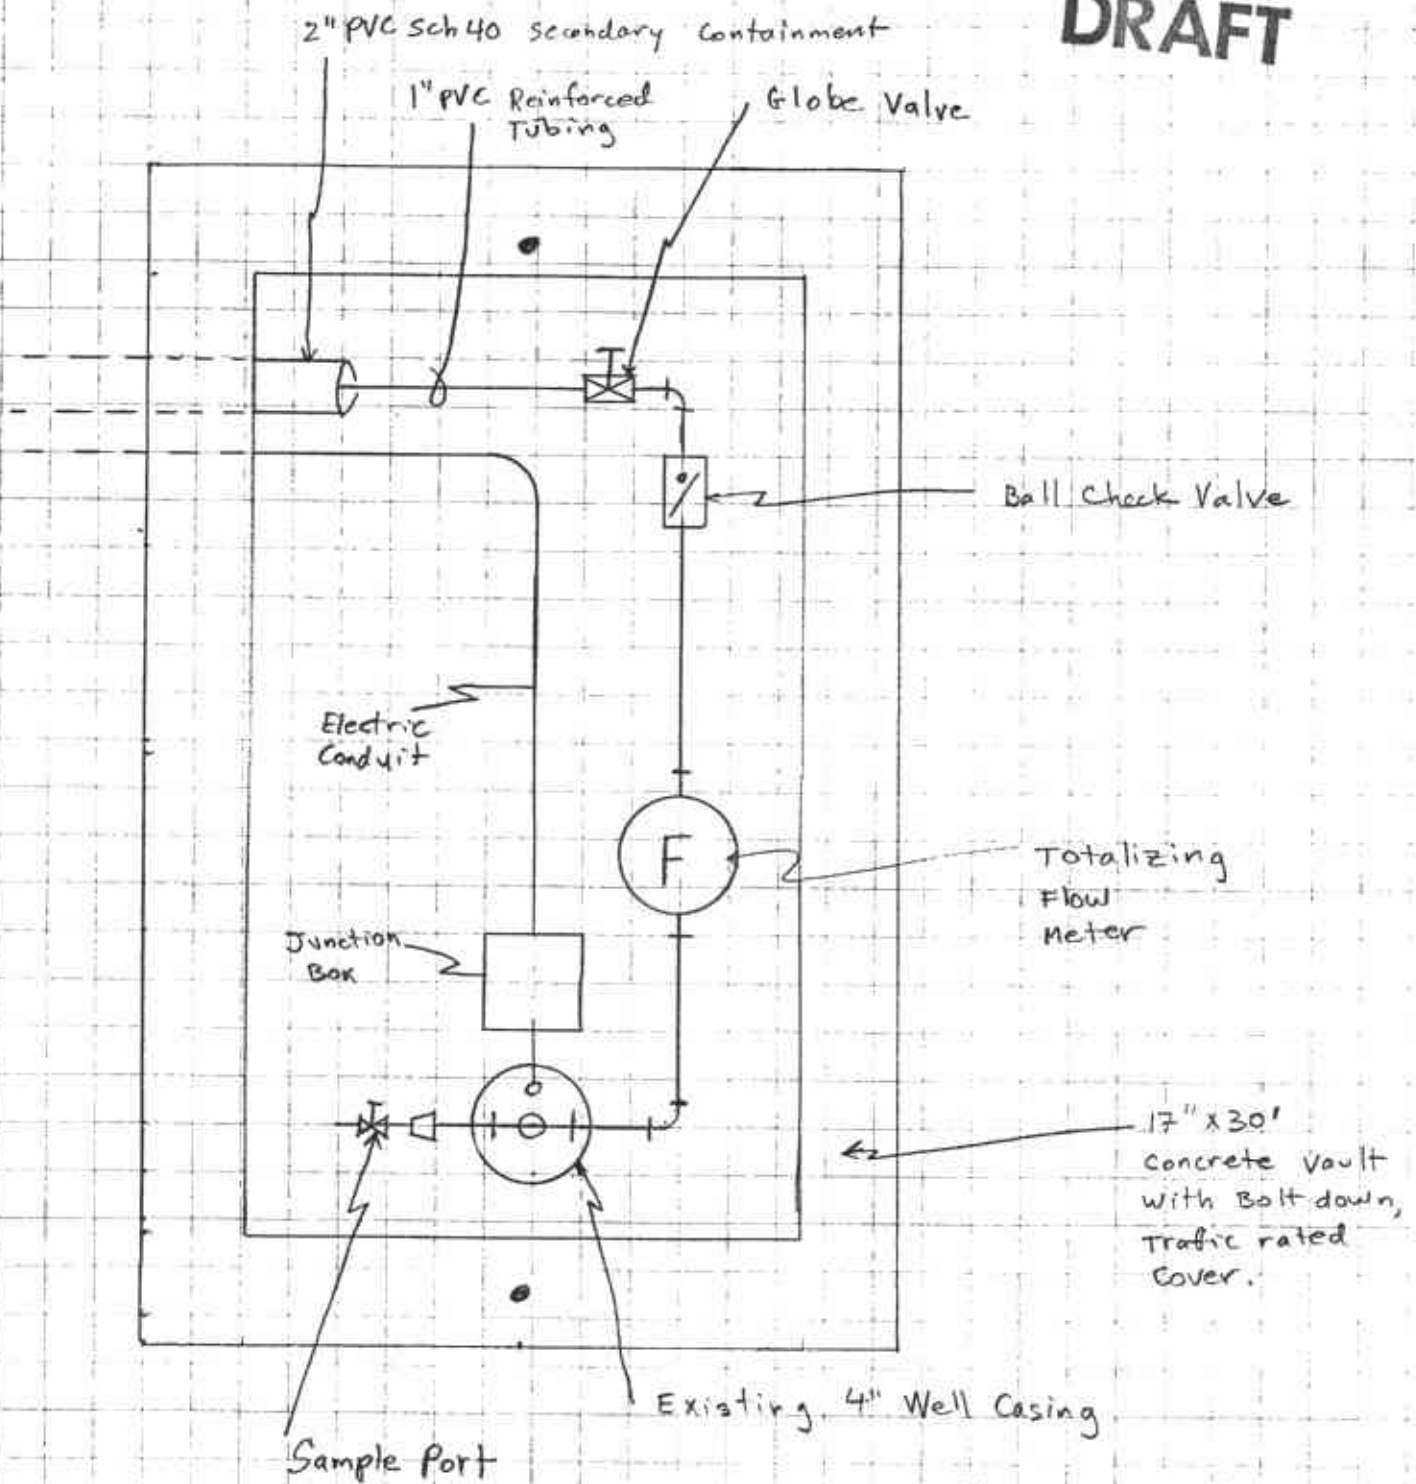 DRAFT
2" PVC Sch 40 Secondary Containment
1" PVC Reinforced
Tubing
Globe Valve
Ball Check Valve
Electric
Conduit
F
Totalizing
Flow
Meter
Junction
Box
17" x 30'
Concrete Vault
with Bolt down,
Trafic rated
Cover.
Existing 4" Well Casing
Sample Port